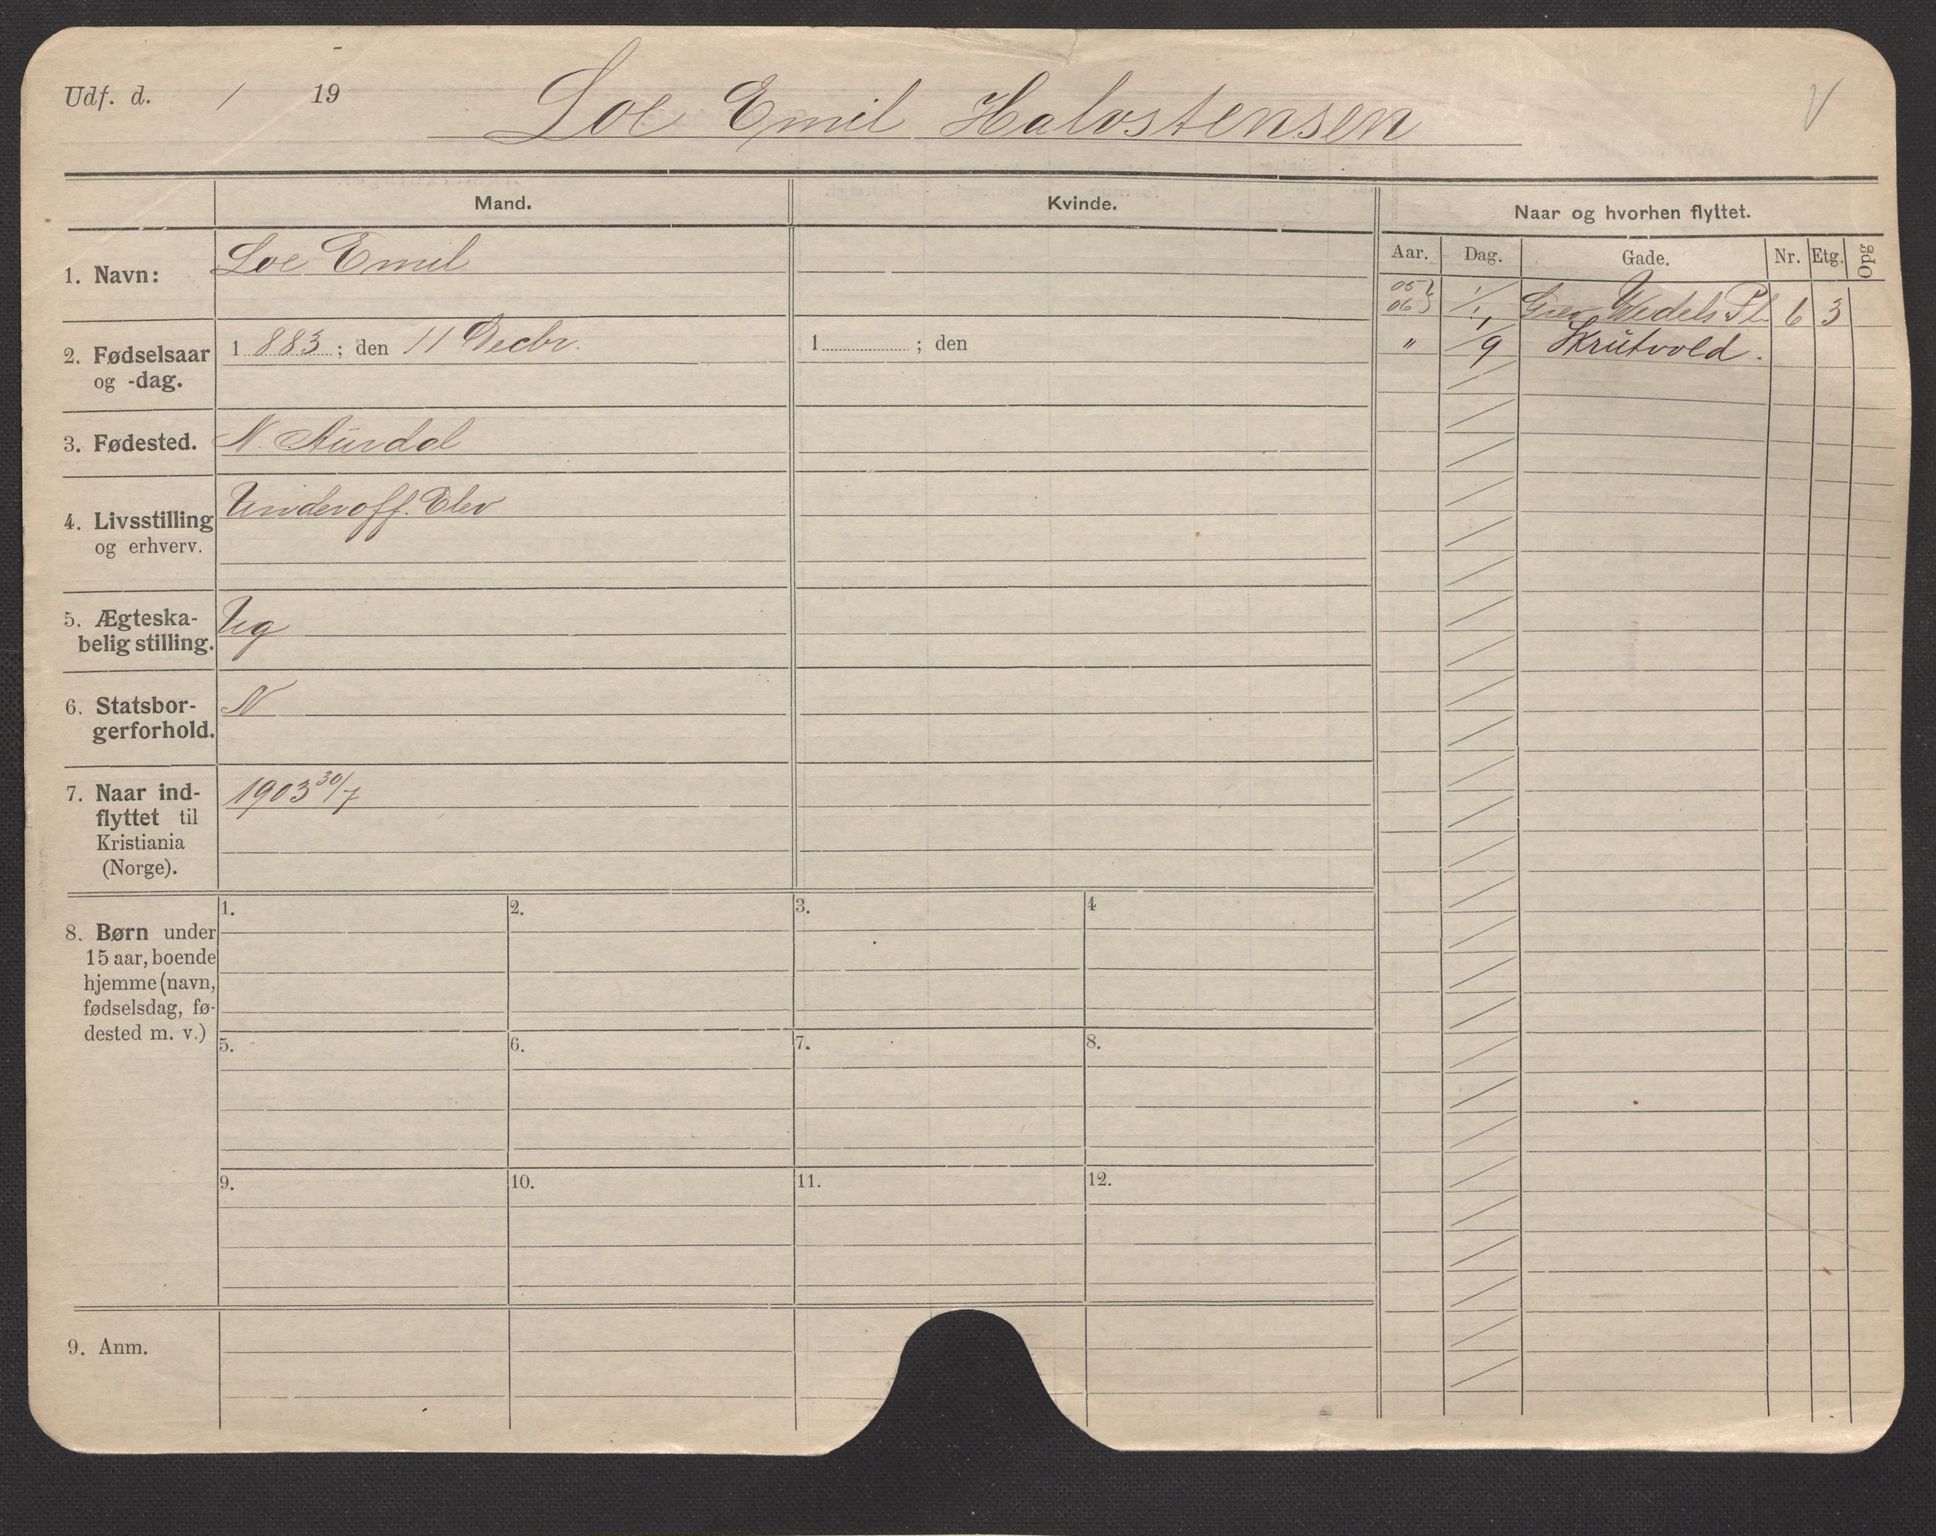 Udf. d. / 19
Loe Emil Halvstensen
V
Mand.
Kvinde.
Naar og hvorhen flyttet.
Aar. Dag. Gade. Nr. Etg. Opg
05 }
06 } 1/1 Grev Wedels Pl. 6 3
" 1/9
1. Navn: Loe Emil
2. Fødselsaar og -dag. 1 883 ; den 11 Decbr.
1 ; den
3. Fødested. N. Aurdal
4. Livsstilling og erhverv. Underoff. Elev
5. Ægteska-
belig stilling. Ug
6. Statsbor-
gerforhold. N
7. Naar ind-
flyttet til
Kristiania
(Norge). 1903 30/7
8. Børn under
15 aar, boende
hjemme (navn,
fødselsdag, fø-
dested m. v.)
1. 2. 3. 4
5. 6. 7. 8.
9. 10. 11. 12.
9. Anm.